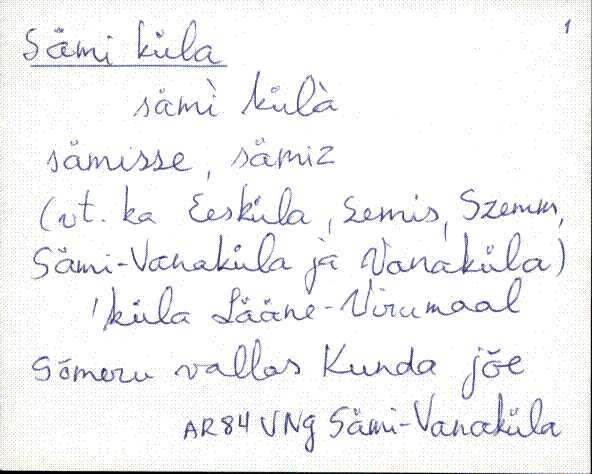 1
Sämi küla
sämì külà
sämisse, sämiz
(vt. ka Eesküla, Semis, Szemm,
Sämi-Vanaküla ja Vanaküla)
'küla Lääne-Virumaal
Sõmeru vallas Kunda jõe
AR84 VNg Sämi-Vanaküla